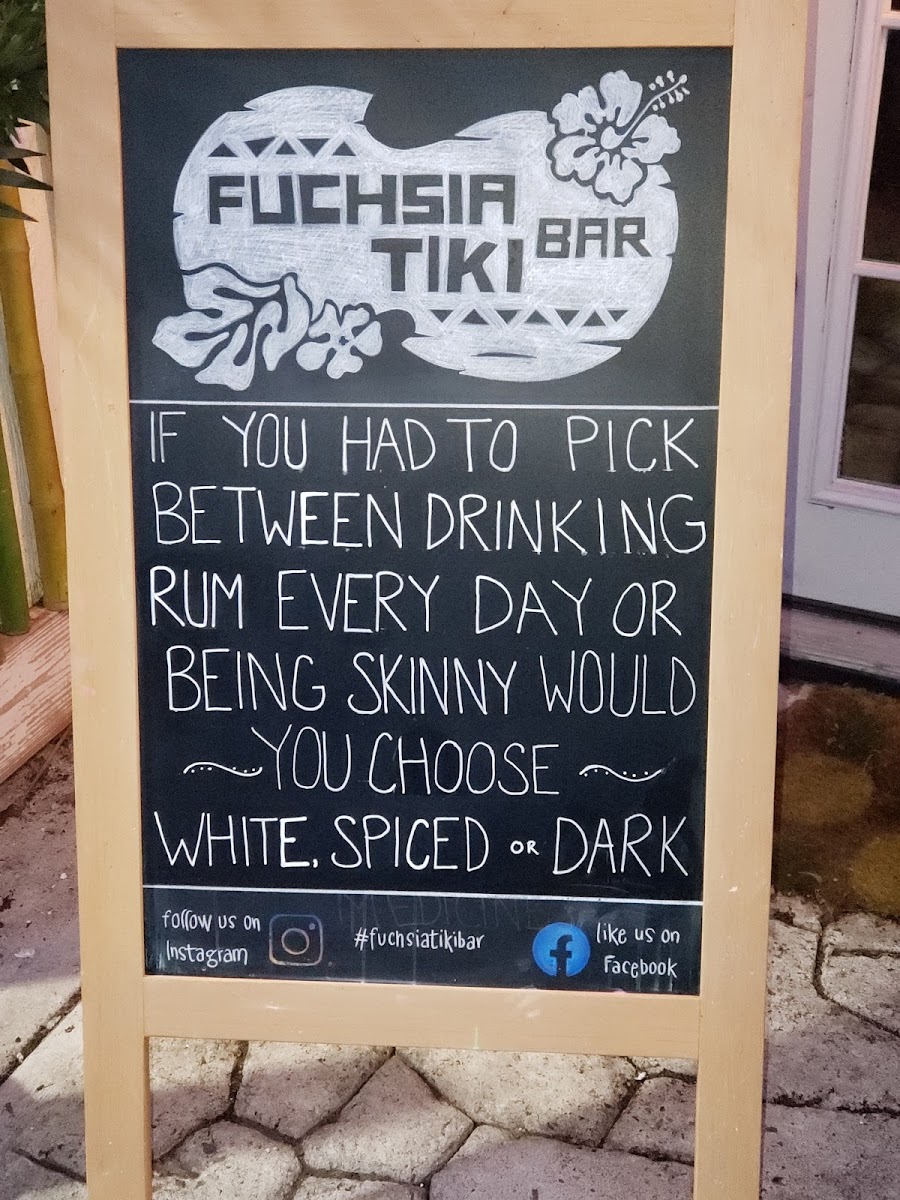 FUCHSIA
TIKI BAR
IF YOU HAD TO PICK
BETWEEN DRINKING
RUM EVERY DAY OR
BEING SKINNY WOULD
YOU CHOOSE
WHITE, SPICED OR DARK
MEDICINE
follow us on
Instagram
#fuchsiatikibar
like us on
Facebook